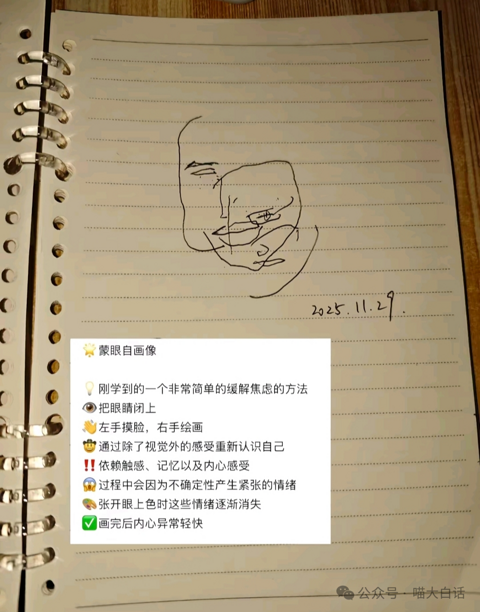 2025.11.29.
🌟蒙眼自画像
💡刚学到的一个非常简单的缓解焦虑的方法
👁️把眼睛闭上
👋左手摸脸，右手绘画
🤠通过除了视觉外的感受重新认识自己
‼️依赖触感、记忆以及内心感受
😱过程中会因为不确定性产生紧张的情绪
🎨张开眼上色时这些情绪逐渐消失
✅画完后内心异常轻快
公众号·喵大白话